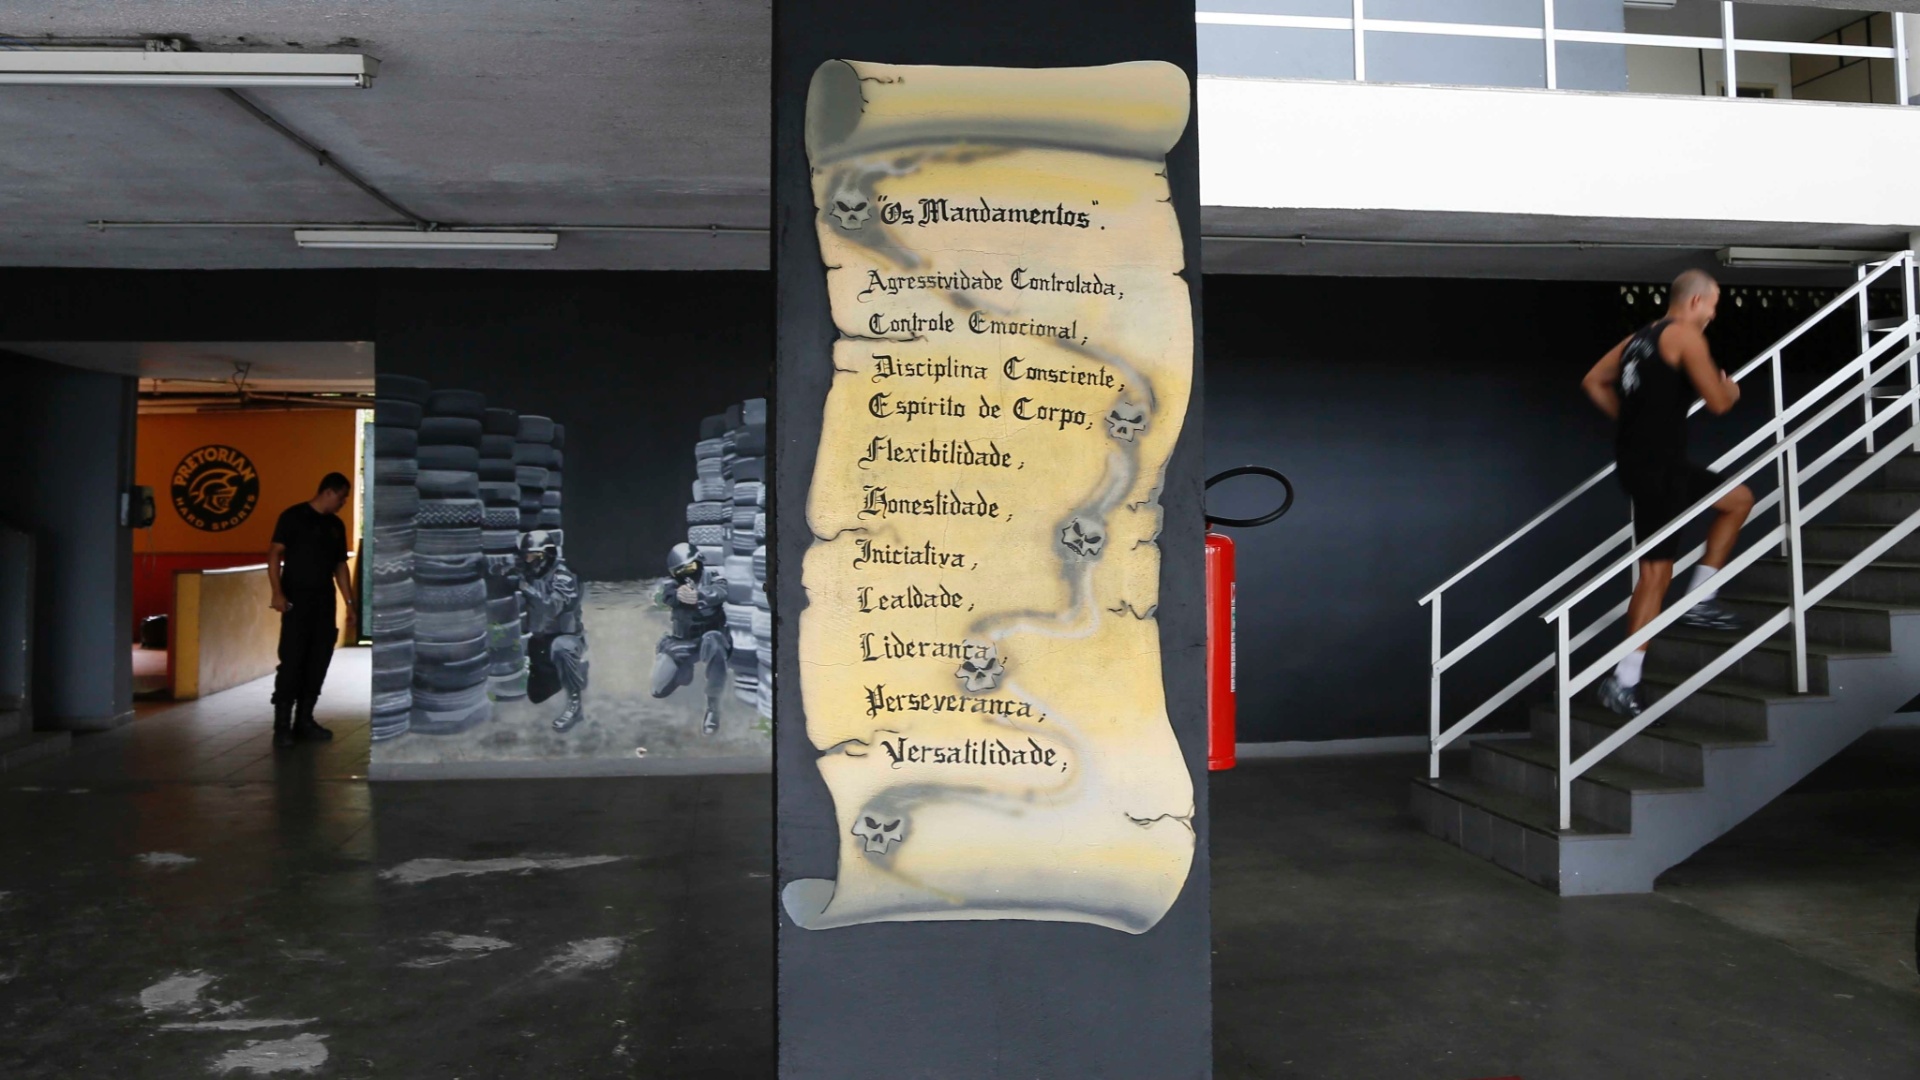 "Os Mandamentos".
Agressividade Controlada,
Controle Emocional,
Disciplina Consciente,
Espírito de Corpo,
Flexibilidade,
Honestidade,
Iniciativa,
Lealdade,
Liderança,
Perseverança,
Versatilidade,
PRETORIAN
HARD SPORTS